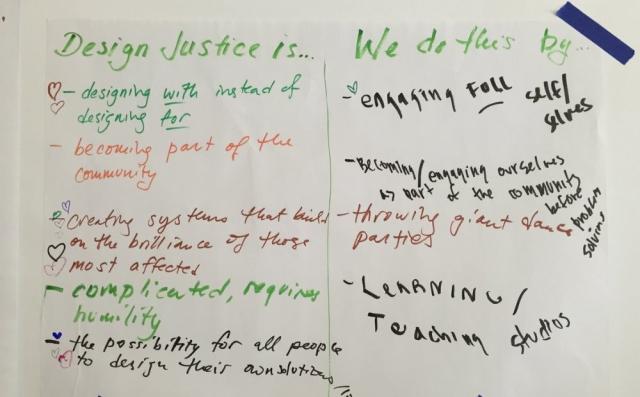 Design Justice is...
- designing with instead of
designing for
- becoming part of the
community
- creating systems that build
on the brilliance of those
most affected
- complicated, requires
humility
- the possibility for all people
to design their own solutions
We do this by...
- engaging FULL self/
selves
- Becoming/engaging ourselves
as part of the community
before
problem
solving
- throwing giant dance
parties
- LEARNING/
Teaching studios